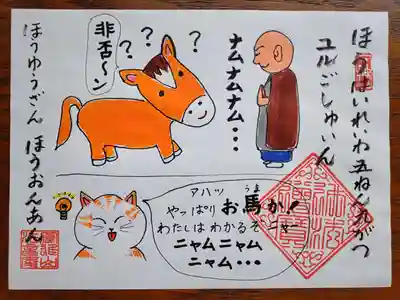 ほうはいれいわ五ねん九がつ
ユルごしゅいん
ナムナムナム・・・
？
？
？
？
非否〜ン
ほうゆうざん　ほうおんあん
アハッ
やっぱりお馬か!
うま
わたしはわかるぞニャー
ニャムニャム
ニャム・・・